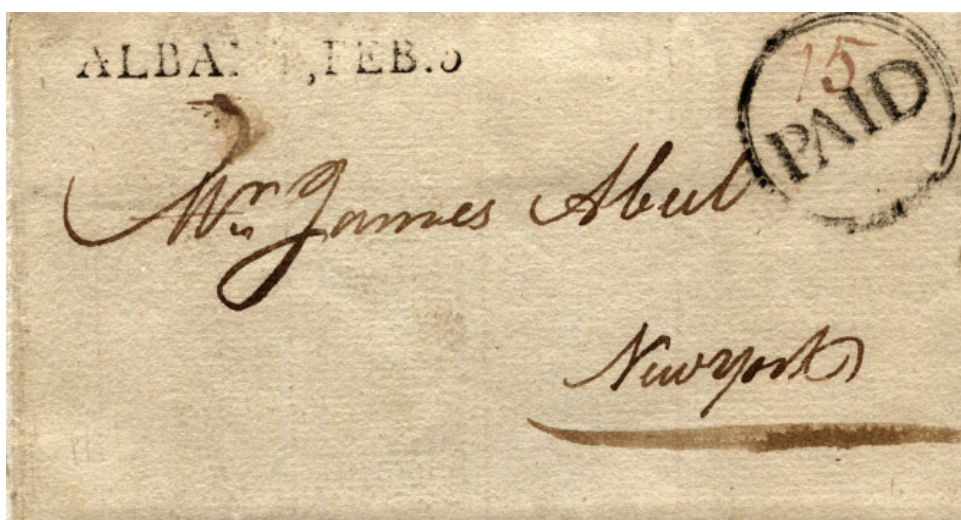 ALBANY, FEB. 5
15
PAID
Mr. James Abeel
Newyork